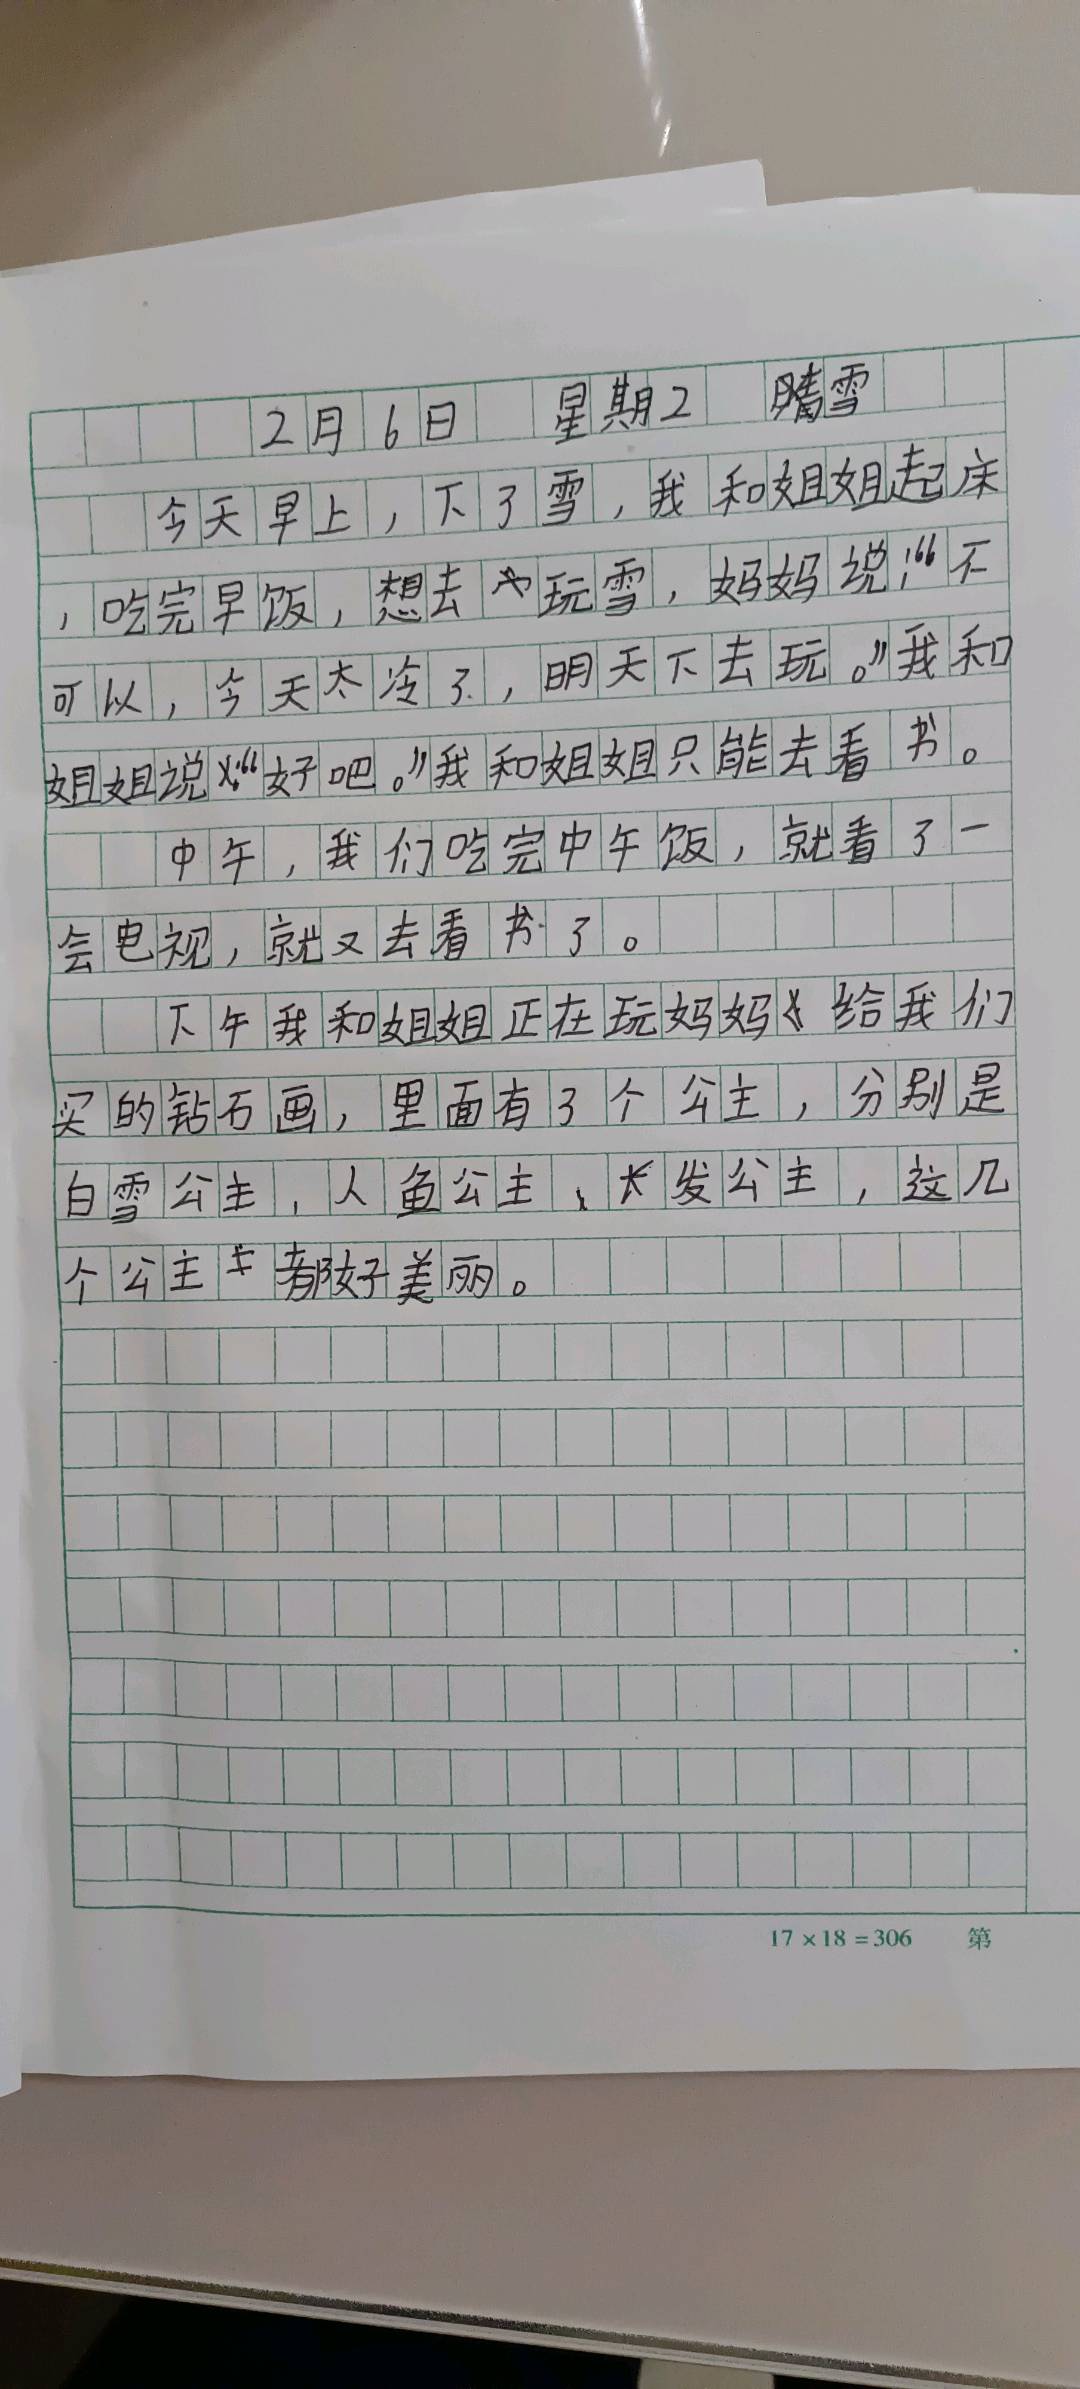 2月6日 星期2 晴雪
今天早上，下了雪，我和姐姐起床
，吃完早饭，想去玩雪，妈妈说：“不
可以，今天太冷了，明天下去玩。”我和
姐姐说：“好吧。”我和姐姐只能去看书。
中午，我们吃完中午饭，就看了一
会电视，就又去看书了。
下午我和姐姐正在玩妈妈给我们
买的钻石画，里面有3个公主，分别是
白雪公主，人鱼公主、长发公主，这几
个公主都好美丽。
17×18=306 第